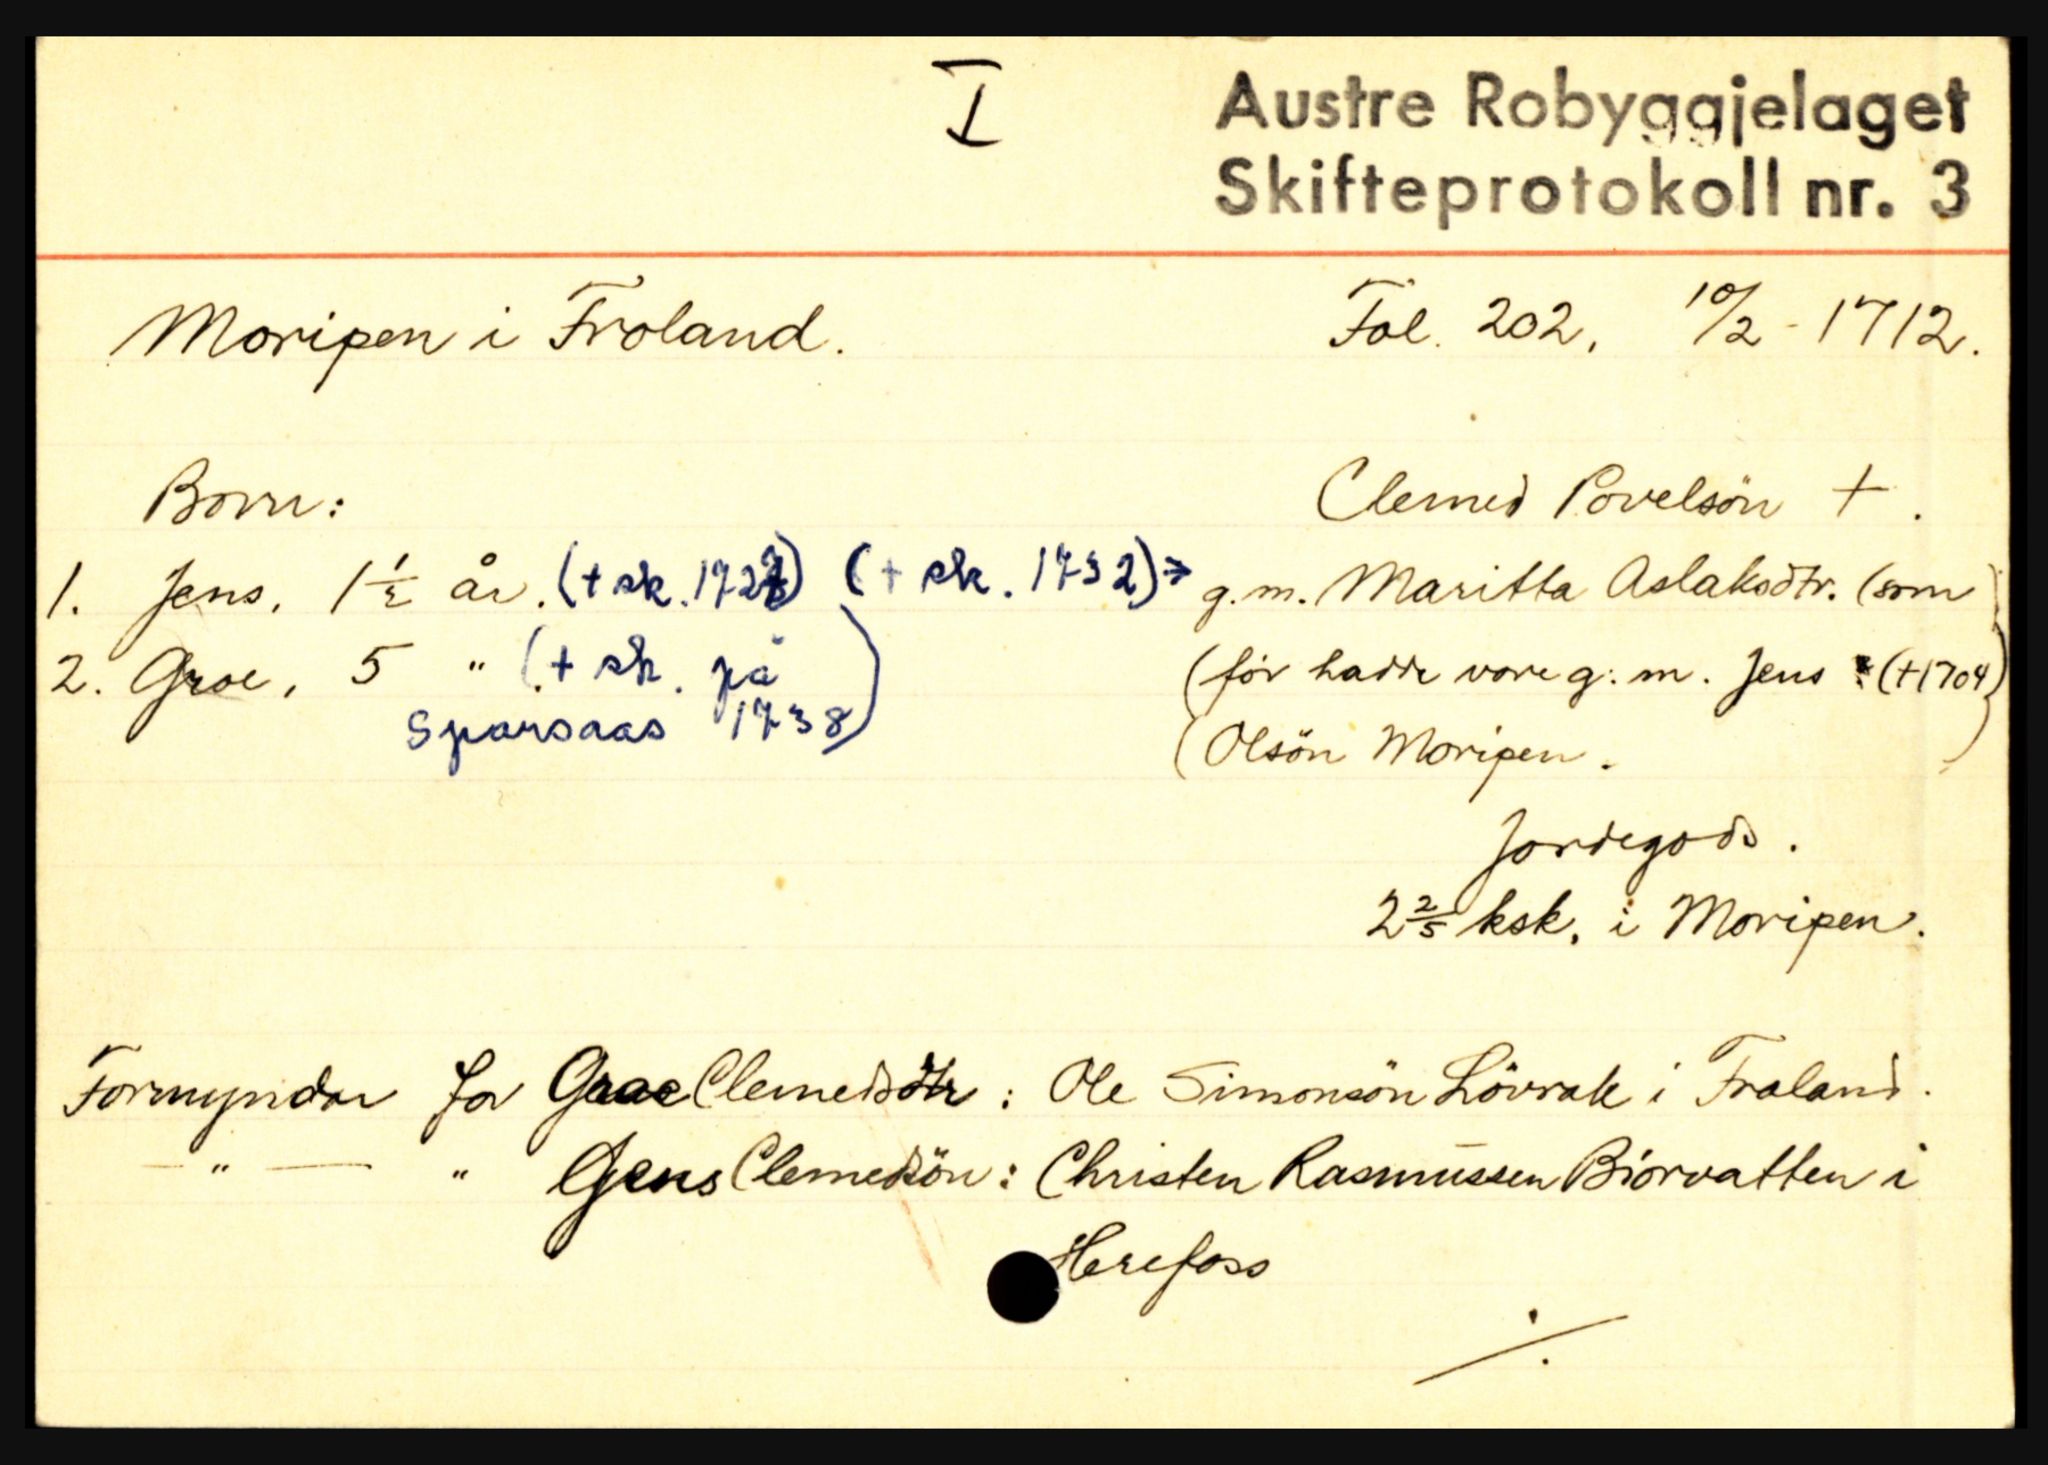 I
Austre Robyggjelaget
Skifteprotokoll nr. 3
Moripen i Froland. Fol. 202, 10/2 - 1712.
Born: Clemed Povelsön +.
1. Jens, 1 1/2 år. (+ sk. 172) (+ sk. 1732) → g.m. Maritta Aslaksdtr. (som
2. Groe, 5 " (+ sk. på (för hadde vore g.m. Jens (+1704)
Sparsaas 1738) (Olsön Moripen.
Jordegods.
2 2/5 ksk. i Moripen.
Formyndar for Groe Clemedsdtr : Ole Simonsön Lövrak i Froland.
— " — " Jens Clemedsön : Christen Rasmussen Biorvatten i
Herefoss
·/.